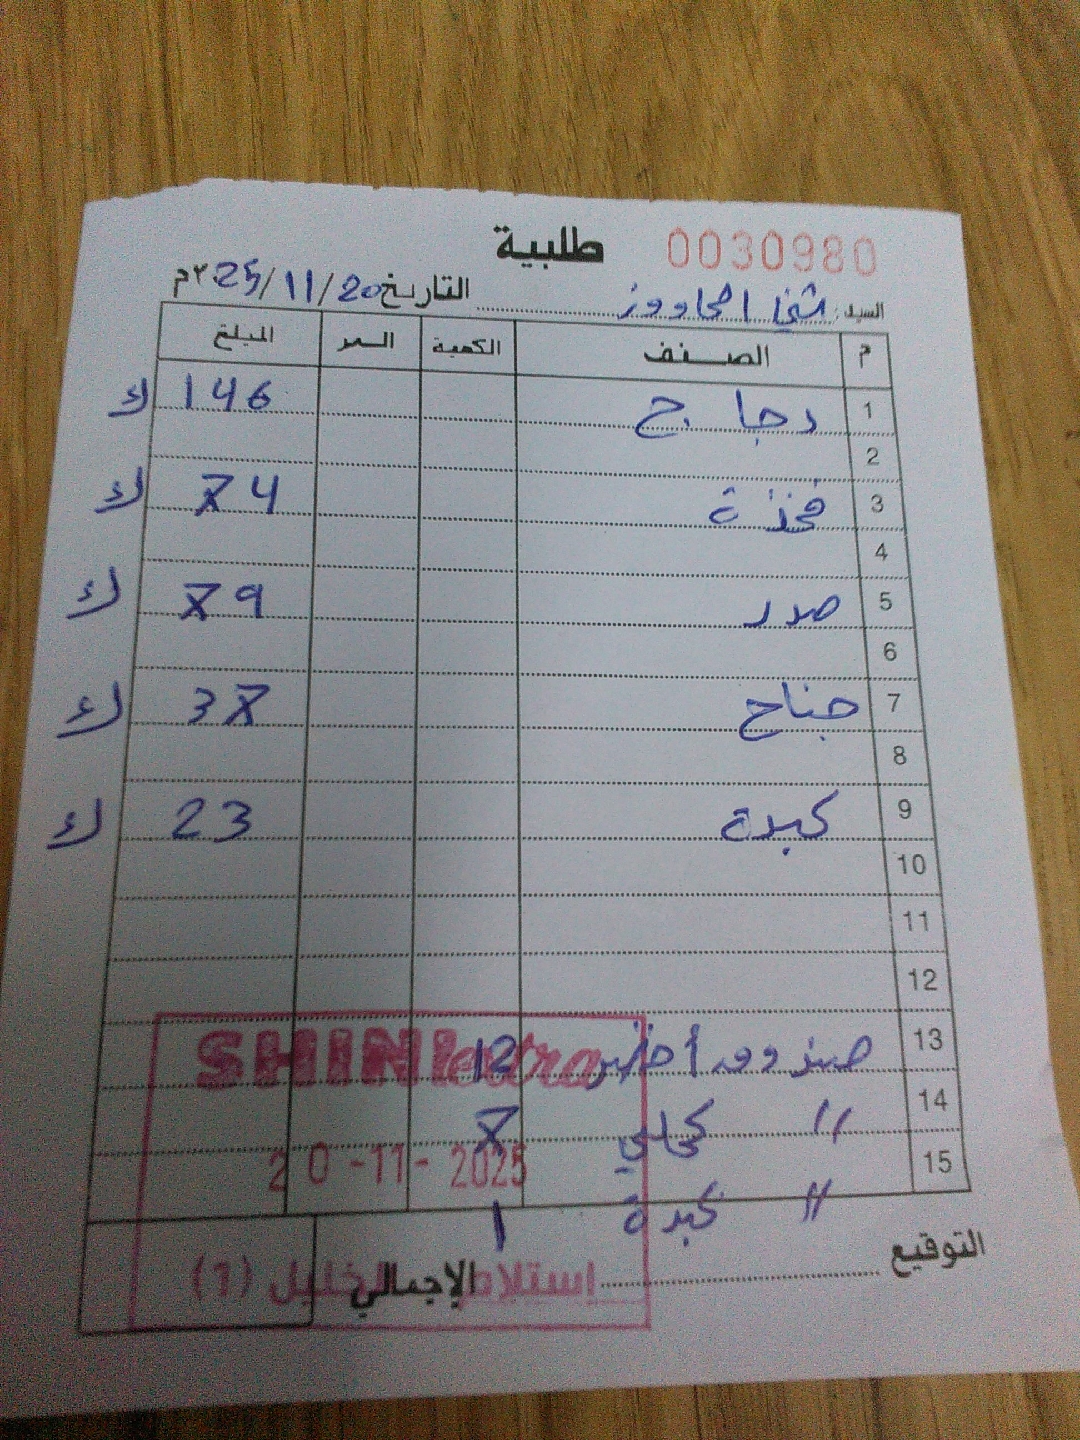 طلبية 0030980
السيد: شني الحاووز التاريخ 20/11/2025م
م الصنف الكمية السعر المبلغ
1 دجاج 146 ك
2
3 فخذة 74 ك
4
5 صدر 79 ك
6
7 جناح 37 ك
8
9 كبدة 23 ك
10
11
12
13 صندوق أخضر 12
14 " كحلي 7
15
" كبدة 1
SHINI extra
20-11-2025
استلام الخليل (1)
التوقيع
الإجمالي